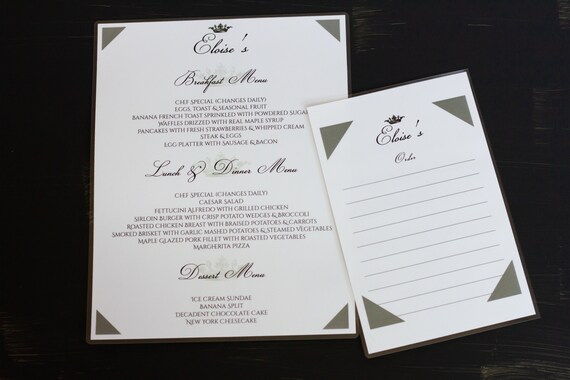 Eloise's
Breakfast Menu
Chef Special (changes daily)
Eggs, Toast & Seasonal Fruit
Banana French Toast sprinkled with Powdered Sugar
Waffles drizzled with real Maple Syrup
Pancakes with Fresh Strawberries & Whipped Cream
Steak & Eggs
Egg Platter with Sausage & Bacon
Lunch & Dinner Menu
Chef Special (changes daily)
Caesar Salad
Fettucini Alfredo with Grilled Chicken
Sirloin Burger with Crisp Potato Wedges & Broccoli
Roasted Chicken Breast with Braised Potatoes & Carrots
Smoked Brisket with Garlic Mashed Potatoes & Steamed Vegetables
Maple Glazed Pork Fillet with Roasted Vegetables
Margherita Pizza
Dessert Menu
Ice Cream Sundae
Banana Split
Decadent Chocolate Cake
New York Cheesecake
Eloise's
Order